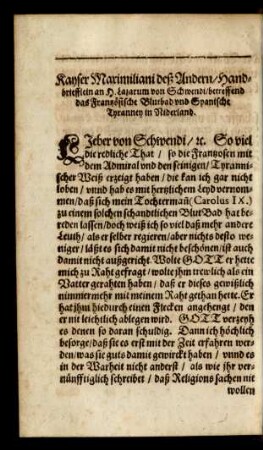 Kayser Maximiliani deß Andern/Hand-
brieflein an H. Lazarum von Schwendi/betreffend
das Französische Blutbad vnd Spanische
Tyranney in Niderland.
LIeber von Schwendi/ ꝛc. So viel
die redliche That / so die Frantzosen mit
dem Admiral vnd den seinigen/ Tyranni-
scher Weiß erzeigt haben / die kan ich gar nicht
loben / vnnd hab es mit hertzlichem Leyd vernom-
men/ daß sich mein Tochtermañ (Carolus IX.)
zu einem solchen schandtlichen BlutBad hat be-
reden lassen/ doch weiß ich so viel daß mehr andere
Leuth/ als er selber regieren/ aber nichts desto we-
niger / läßt es sich damit nicht beschönen/ ist auch
damit nicht außgericht. Wolte GOTT er hette
mich zu Raht gefragt / wolte jhm trewlich als ein
Vatter gerahten haben / daß er dieses gewißlich
nimmermehr mit meinem Raht gethan hette. Er
hat jhm hiedurch einen Flecken angehengt / den
er nit leichtlich ablegen wird. GOTT verzeyh
es denen so daran schuldig. Dann ich höchlich
besorge/ daß sie es erst mit der Zeit erfahren wer-
den/ was sie guts damit gewirckt haben / vnnd es
in der Warheit nicht anderst / als wie jhr ver-
nünfftiglich schreibet / daß Religions sachen nit
wollen